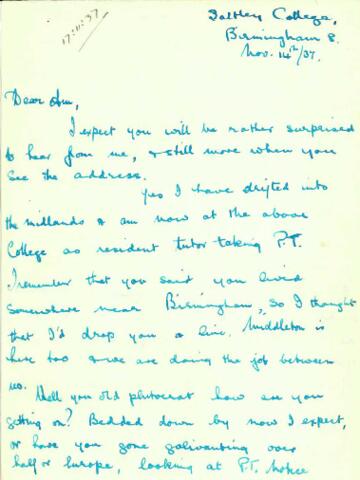 17:11:37
Saltley College,
Birmingham 8.
Nov. 14th/37.
Dear Jim,
I expect you will be rather surprised
to hear from me, & still more when you
see the address.
Yes I have drifted into
the midlands & am now at the above
College as resident tutor taking P.T.
I remember that you said you lived
somewhere near Birmingham, so I thought
that I'd drop you a line. Middleton is
here too & we are doing the job between
us.
Well you old plutocrat how are you
getting on? Bedded down by now I expect,
or have you gone galivanting over
half of Europe, looking at P.T.